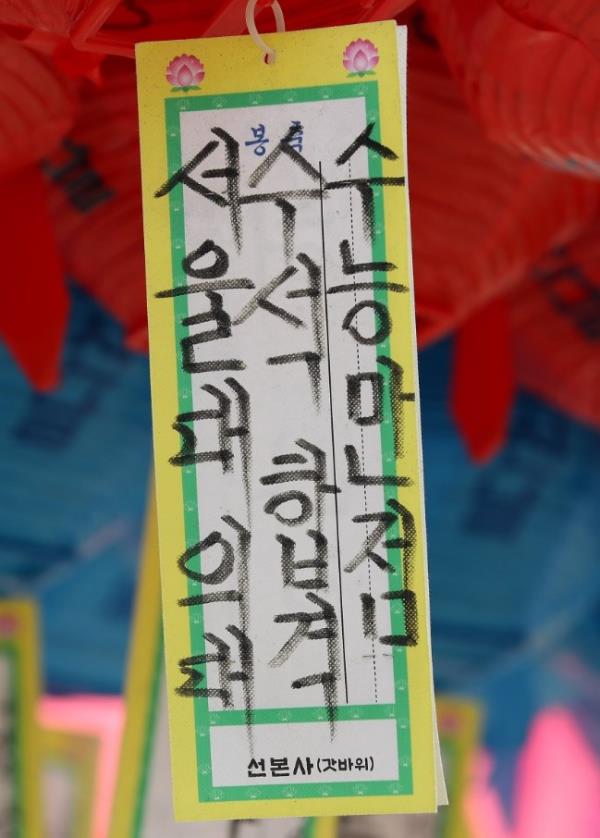 봉축
수능만점
수석 합격
서울대 의대
선본사(갓바위)